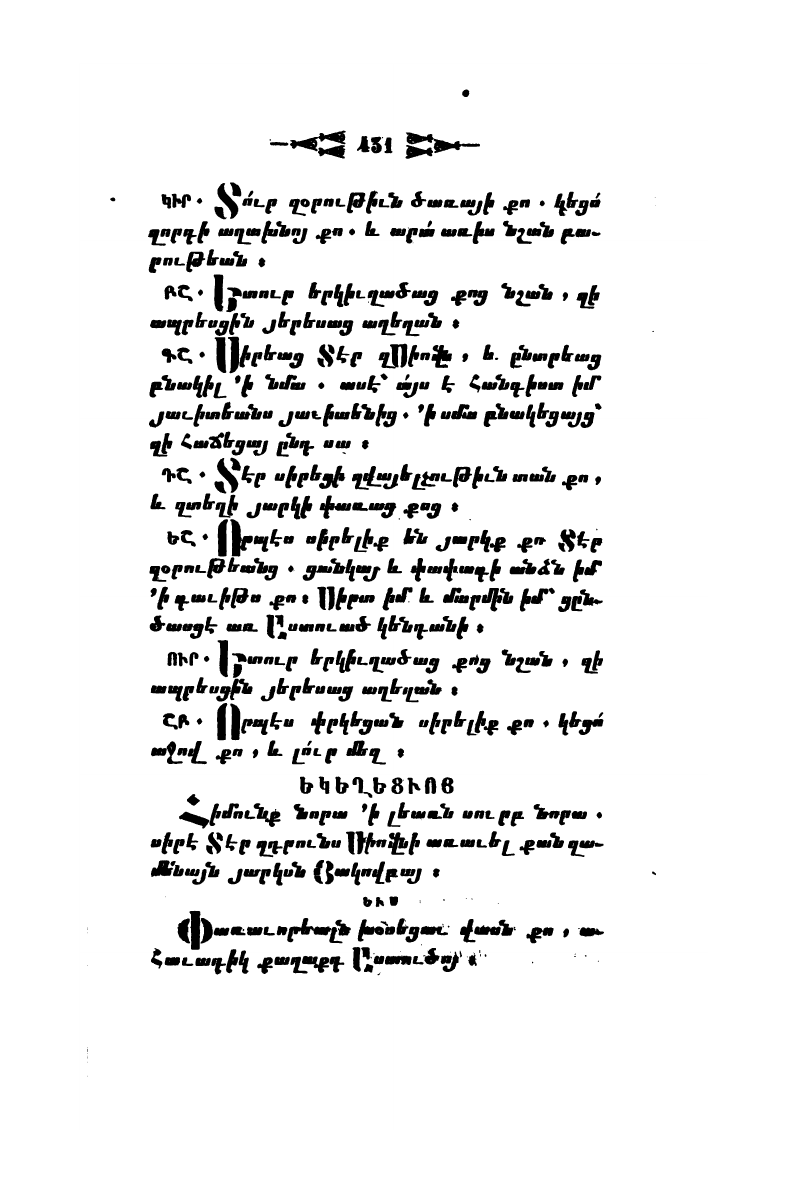 431
ԿԻՐ․ Տո՛ւր զօրութիւն ծառայի քո․ կեցո՛
զորդի աղախնոյ քո․ և արա՛ առիս նշան բա-
րութեան ։
ԲՇ․ Ետուր երկիւղածաց քոց նշան, զի
ապրեսցին յերեսաց աղեղան ։
ԳՇ․ Սիրեաց Տէր զՍիովն, և ընտրեաց
բնակիլ ՚ի նմա․ ասէ՝ ա՛յս է Հանգիստ իմ
յաւիտեանս յաւիտենից․ ՚ի սմա բնակեցայց՝
զի Հաճեցայ ընդ սա ։
ԴՇ․ Տէր սիրեցի զվայելչութիւն տան քո,
և զտեղի յարկի փառաց քոց ։
ԵՇ․ Որպէս սիրելիք են յարկք քո Տէր
զօրութեանց․ ցանկայ և փափագի անձն իմ
՚ի գաւիթս քո ։ Սիրտ իմ և մարմին իմ՝ ցըն-
ծասցէ առ Աստուած կենդանի ։
ՈՒՐ․ Ետուր երկիւղածաց քոց նշան, զի
ապրեսցին յերեսաց աղեղան ։
ՇԲ․ Որպէս փրկեցան սիրելիք քո, կեցո՛
աջով քո, և լո՛ւր մեզ ։
ԵԿԵՂԵՑՒՈՑ
Հիմունք նորա ՚ի լեառն սուրբ նորա․
սիրէ Տէր զդրունս Սիովնի առաւել քան զա-
մենայն յարկսն Յակովբայ ։
ԵՒՍ
Փառաւորեալն խօսեցաւ վասն քո, ա-
Հաւադիկ քաղաքդ Աստուծոյ ։